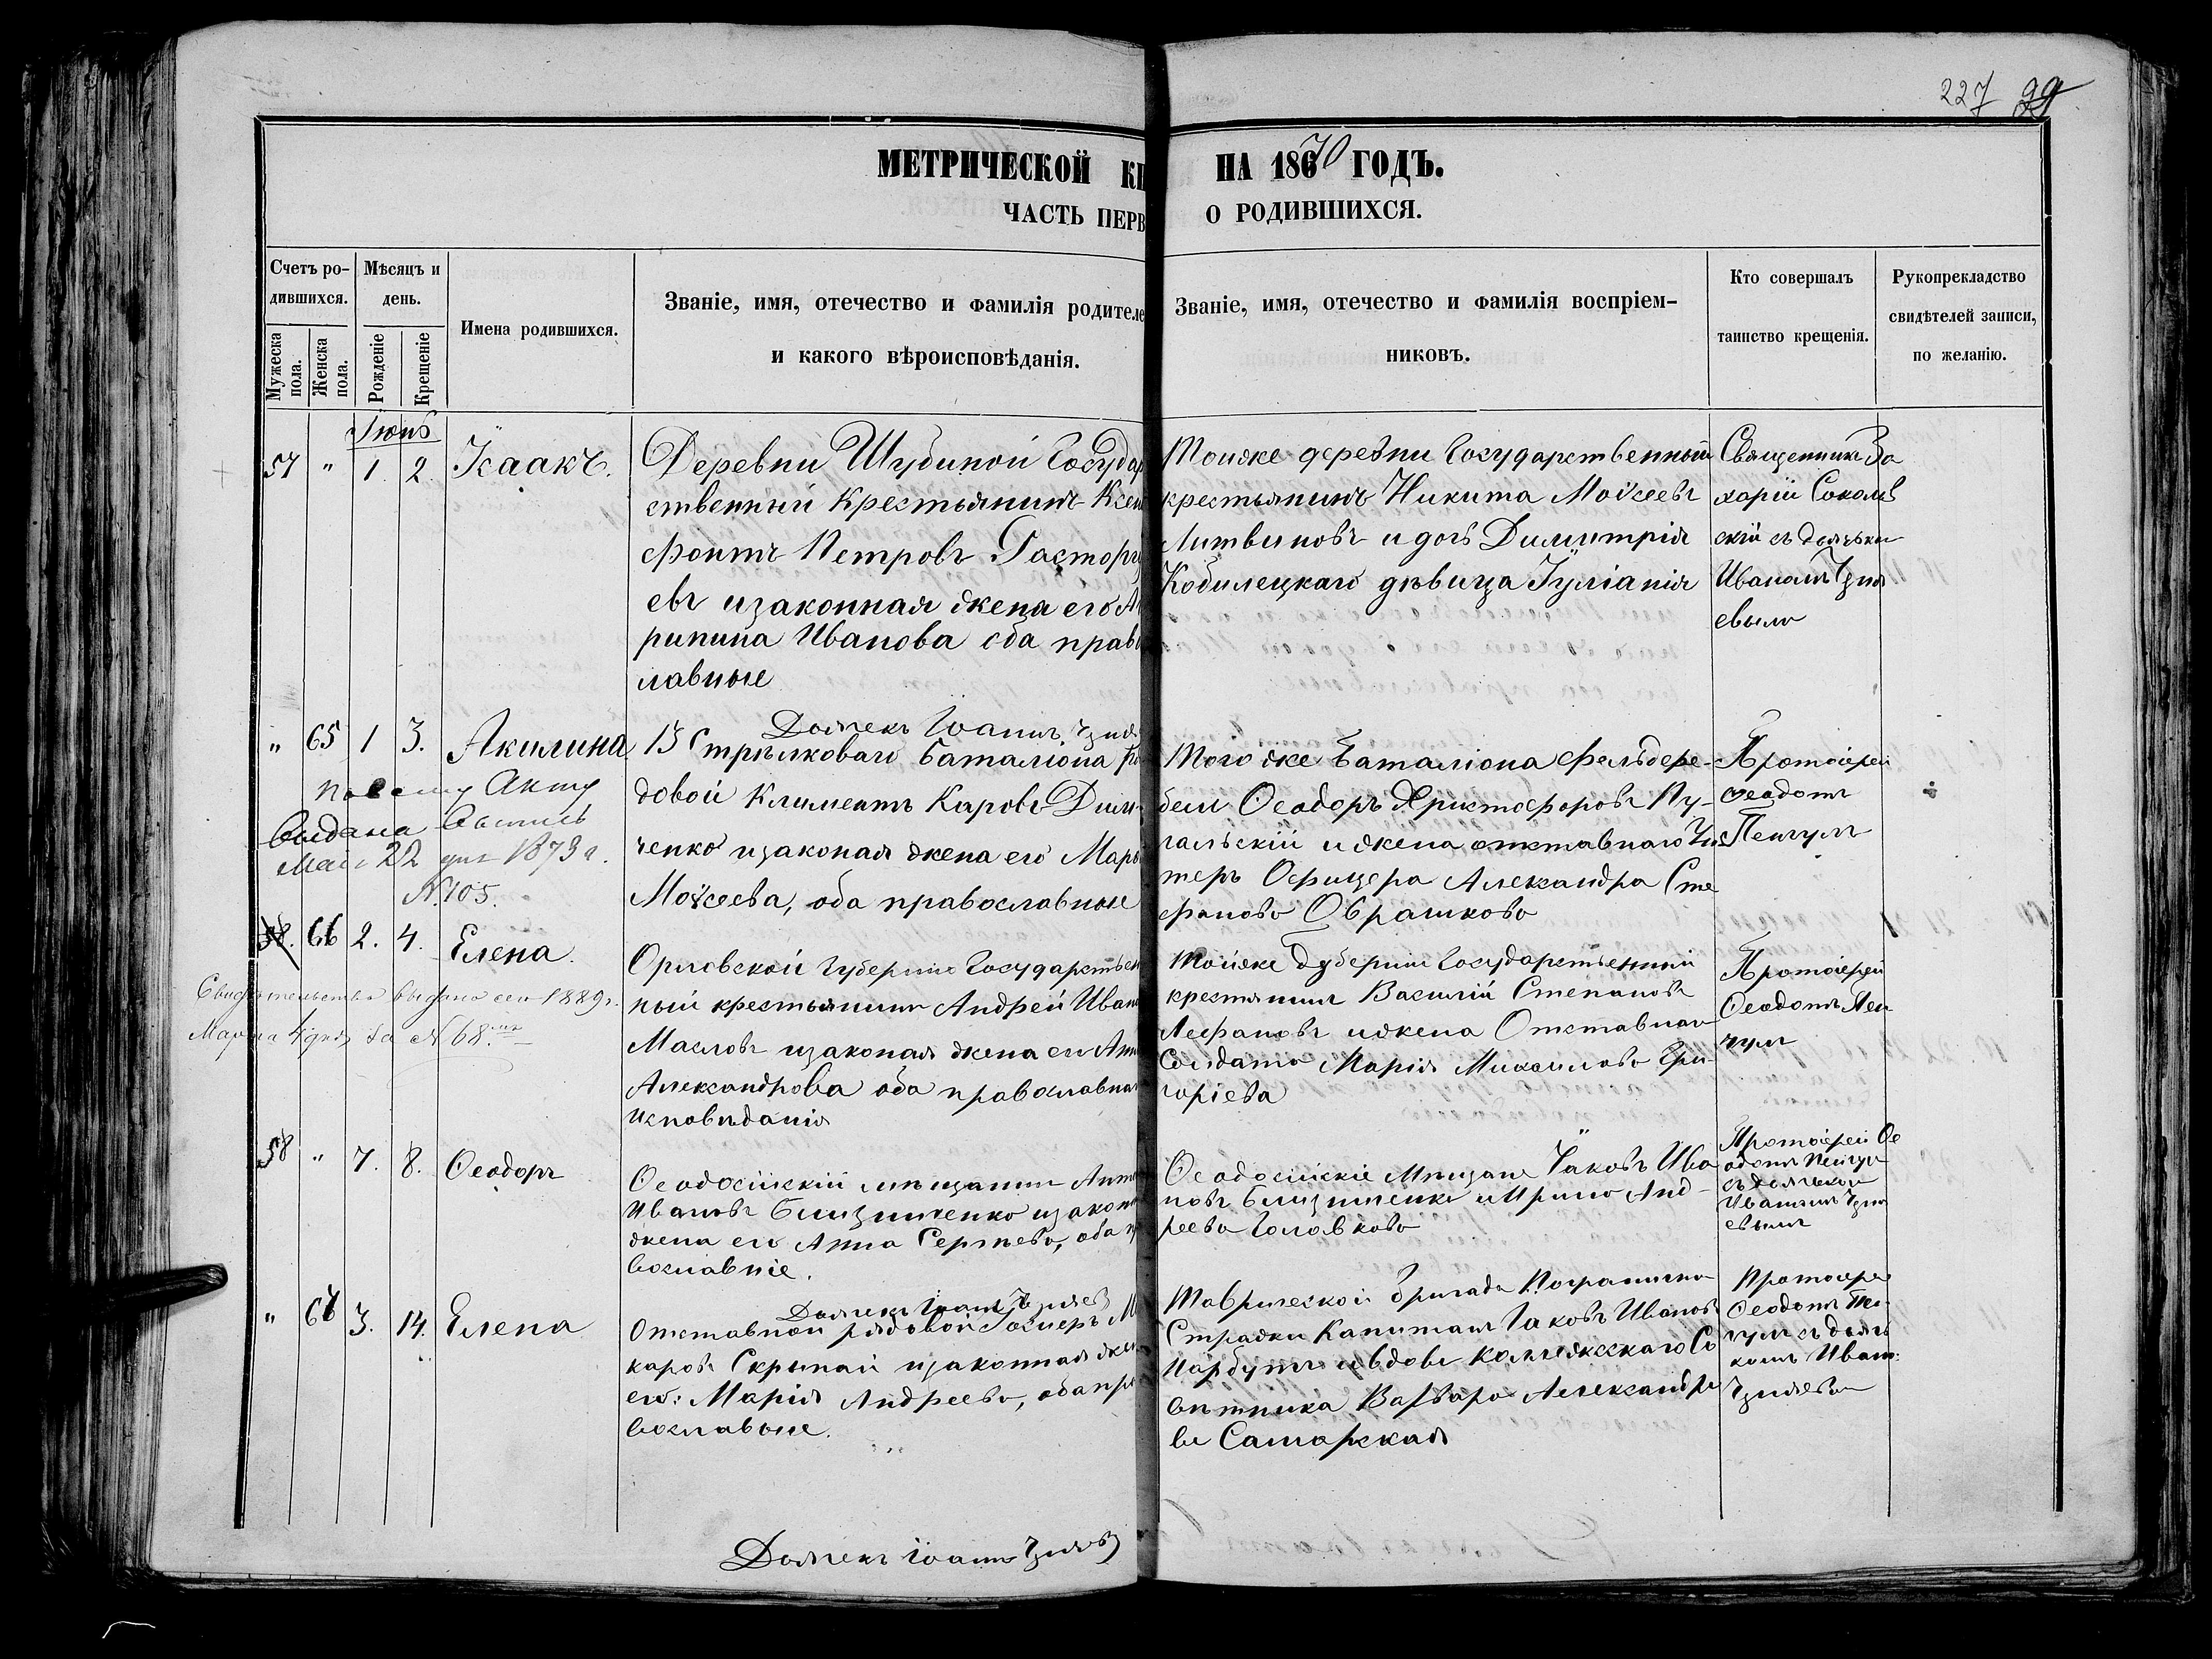 227 99
МЕТРИЧЕСКОЙ КН НА 1870 ГОДЪ.
ЧАСТЬ ПЕРВ О РОДИВШИХСЯ.
Счетъ ро-
дившихся.
Мужеска пола.
Женска пола.
Мѣсяцъ и
день.
Рожденіе
Крещеніе
Имена родившихся.
Званіе, имя, отечество и фамилія родителе
и какого вѣроисповѣданія.
Званіе, имя, отечество и фамилія воспріем-
никовъ.
Кто совершалъ
таинство крещенія.
Рукоприкладство
свидѣтелей записи,
по желанію.
Іюнь
57 " 1. 2. Ісаакъ.
Деревни Шубиной Государ
ственный Крестьянинъ Ксен
офонтъ Петровъ Расторгу
евъ и законная жена его Аг
рипина Иванова оба право
лавные
Дьячекъ Іоаннъ
Тойже деревни Государственный
крестьянинъ Никита Моѵсеевъ
Литвиновъ и дочь Димитрія
Кобилецкаго дѣвица Іуліанія
Священникъ За
харій Соколов
скій съ дьячком
Иваномъ
евымъ
" 65 1 3. Акилина
По сему Акту
выдана Выпись
Мая 22 дня 1873 г.
№ 105.
13 Стрѣлковаго баталіона ря
довой Климентъ Карповъ Дим
ченко и законая жена его Мар
Моѵсеева, оба православные
Того же Баталіона Фельдфе-
бель Ѳеодоръ Христофоровъ Пу-
гальскій и жена отставнаго Ун
теръ Офицера Александра Сте
фанова Обрашкова
Протоіерей
Ѳеодотъ
Пенчулъ
58. 66 2. 4. Елена.
Свидѣтельство выдано сего 1889 г.
Марта 4 дня, за № 68.
Орловской Губерніи Государствен
ный крестьянинъ Андрей Иван
Масловъ и законая жена его Анн
Александрова оба православна
исповѣданія
Тойже Губерніи Государственный
крестянинъ Василій Степановъ
Лефановъ и жена Отставнаго
Солдата Марія Михаилова Гри-
горіева
Протоіерей
Ѳеодотъ Пен
чулъ
58 " 7. 8. Ѳеодоръ
Ѳеодосійскій мѣщанинъ Анто
Ивановъ Близниченко и закон
жена его Анна Сергѣева, оба пр
вославніе.
Дьячекъ Іоаннъ
Ѳеодосійскіе Мѣщане Іаковъ Ива
новъ Близниченко и Ирина Анд-
реева Головкова
Протоіерей Ѳе
одотъ Пенчул
съ дьячком
Иваномъ
евымъ
" 67 3. 14. Елена
Отставной рядовой М
каровъ Скрыпай и законная жен
его: Марія Андреева, оба пра
вославные.
Таврической Бригады Пограничн
Стражи Капитанъ Іаковъ Ивановъ
Нарбутъ и вдова Коллежскаго Со
вѣтника Варвара Александро
ва Самарская
Протоіерей
Ѳеодотъ Пен
чулъ съ дьяч
комъ Иван:
Дьячекъ Іоаннъ